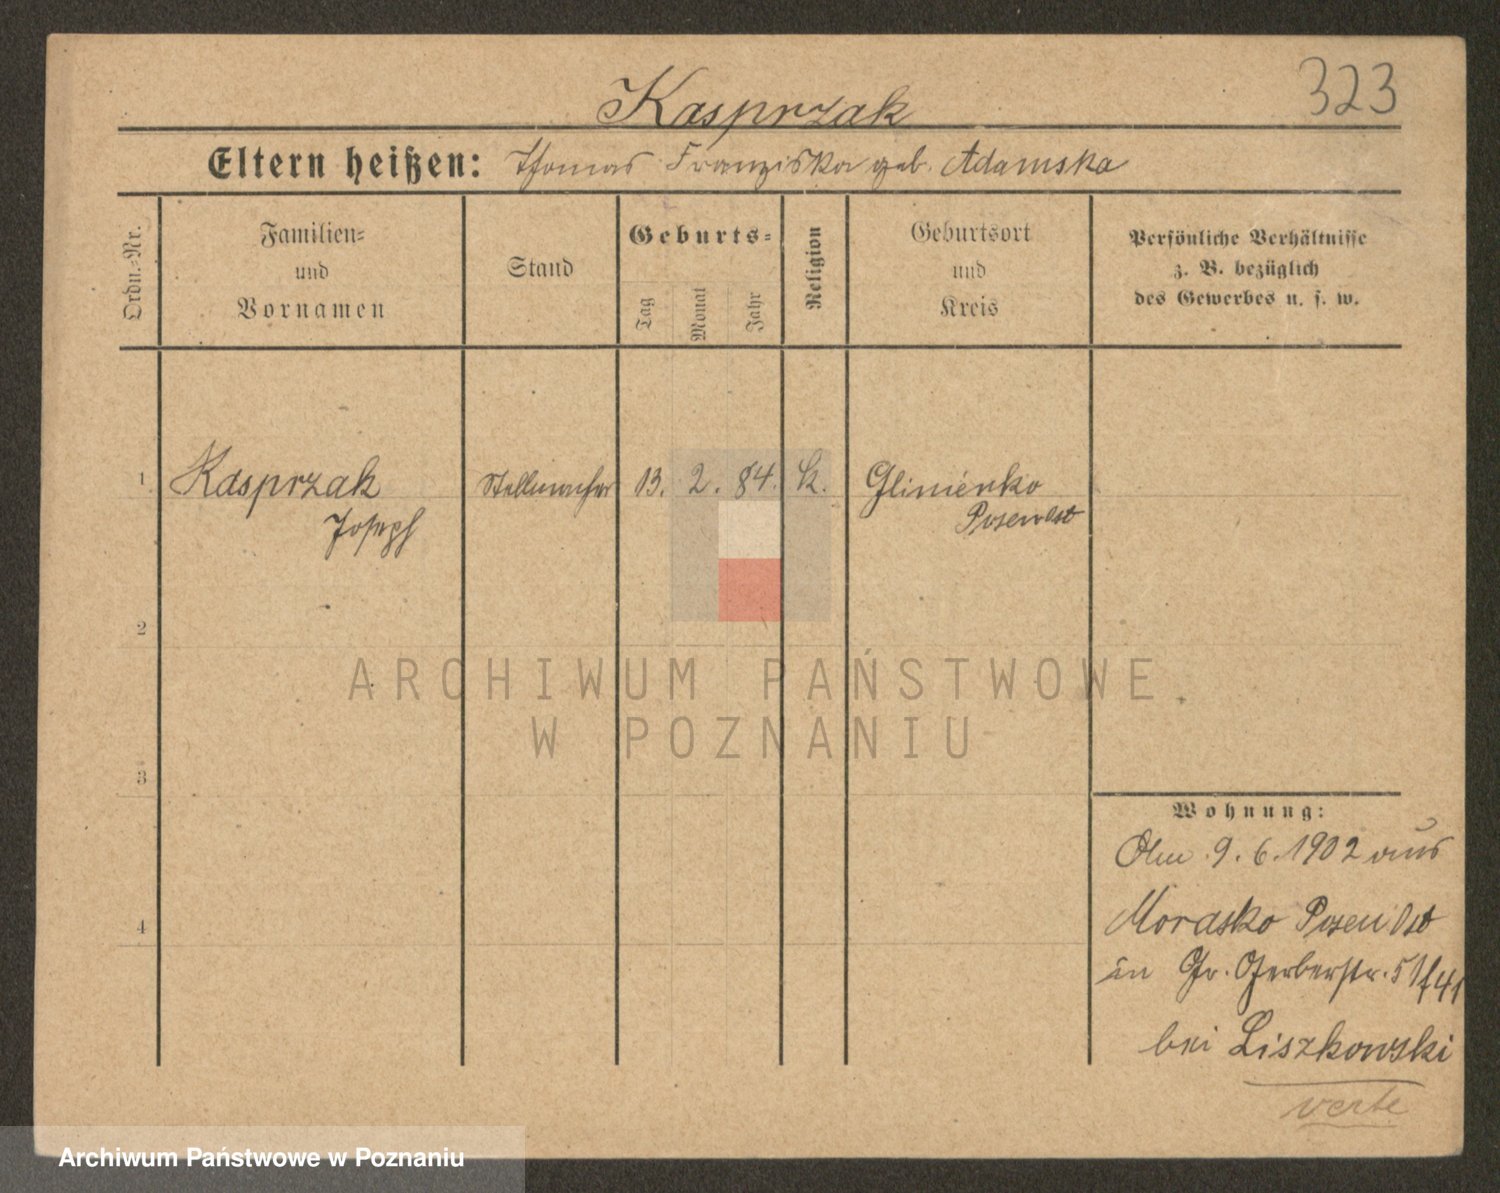 323
Kasprzak
Eltern heißen: Thomas Franziska geb. Adamska
Ordn.-Nr.
Familien-
und
Vornamen
Stand
Geburts-
Tag
Monat
Jahr
Religion
Geburtsort
und
Kreis
Persönliche Verhältnisse
z. B. bezüglich
des Gewerbes u. s. w.
1 Kasprzak Stellmacher 13. 2. 84. k. Glinienko
Joseph Posen Ost
2
ARCHIWUM PAŃSTWOWE
W POZNANIU
3
Wohnung:
9.6.1902 aus
Morasko Posen Ost
4
in Gr. Gerberstr. 51/41
bei Liszkowski
verte
Archiwum Państwowe w Poznaniu